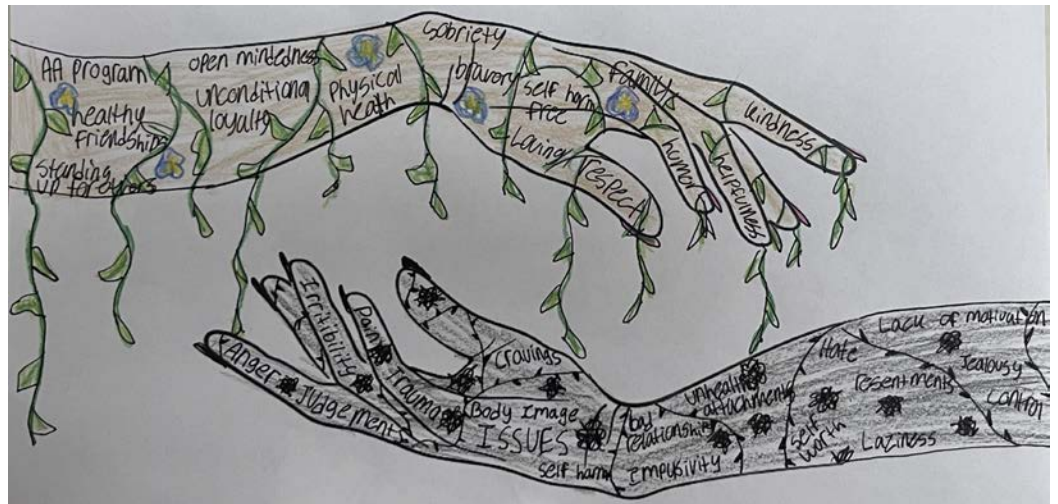 AA program
healthy
friendships
standing
up for others
open mindedness
unconditional
loyalty
physical
heath
sobriety
bravory
self harm
free
Loving
respect
family
humor
helpfulness
kindness
Anger
Judgement
Irritibility
pain
Trauma
Cravings
Body Image
ISSUES
self harm
bad
relationship
unhealthy
attachments
Impusivity
Hate
self
worth
resentments
Laziness
Lack of motivation
Jealousy
control